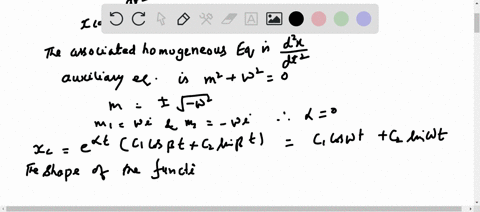 The associated homogeneous Eq is d²x/dt²
auxiliary eq. is m² + w² = 0
m = ± √-w²
m₁ = wi & m₂ = -wi ∴ α = 0
x_c = e^αt (C₁ cos βt + C₂ sin βt) = C₁ cos wt + C₂ sin wt
The shape of the functi